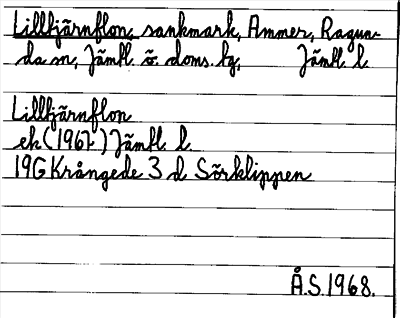 Lilltjärnflon, sankmark, Ammer, Ragun-
da sn, Jämtl. ö. doms. tg, Jämtl. l.
Lilltjärnflon
ek (1967) Jämtl. l.
19G Krångede 3 d Sörklippen
Å.S. 1968.